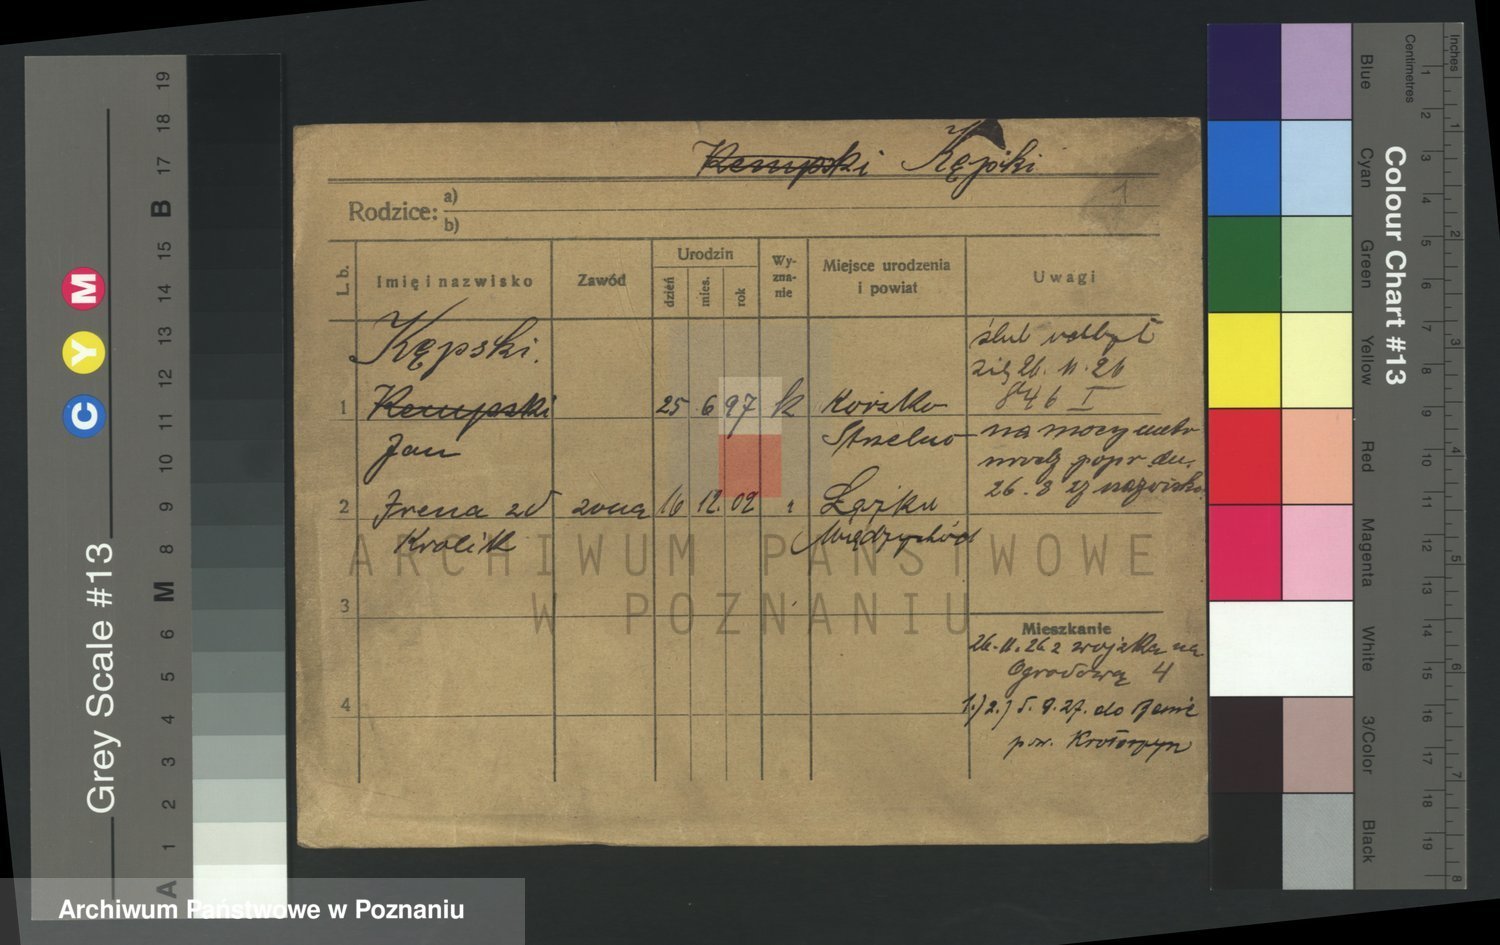 Kempski Kępski
1
Rodzice: a)
b)
L. b.
Imię i nazwisko
Zawód
Urodzin
dzień
mies.
rok
Wy-
zna-
nie
Miejsce urodzenia
i powiat
Uwagi
Kępski.
1 Kempski 25 6 97 k
Jan Strzelno
2 Irena zd żona 16 12. 02 Łężka
Krolik Międzychód
3
4
ślub odbył
się 26. 11. 26
846 I
na mocy
popr
26. 8 27 nazwisko
Mieszkanie
26. 11. 26 z na
Ogrodową 4
1.) 2.) 5. 9. 27. do
pow. Krotoszyn
ARCHIWUM PAŃSTWOWE
W POZNANIU
Archiwum Państwowe w Poznaniu
Grey Scale #13
C Y M
A 1 2 3 4 5 6 M 8 9 10 11 12 13 14 15 B 17 18 19
Colour Chart #13
Blue
Cyan
Green
Yellow
Red
Magenta
White
3/Color
Black
Centimetres
Inches
1 2 3 4 5 6 7 8 9 10 11 12 13 14 15 16 17 18 19
1 2 3 4 5 6 7 8